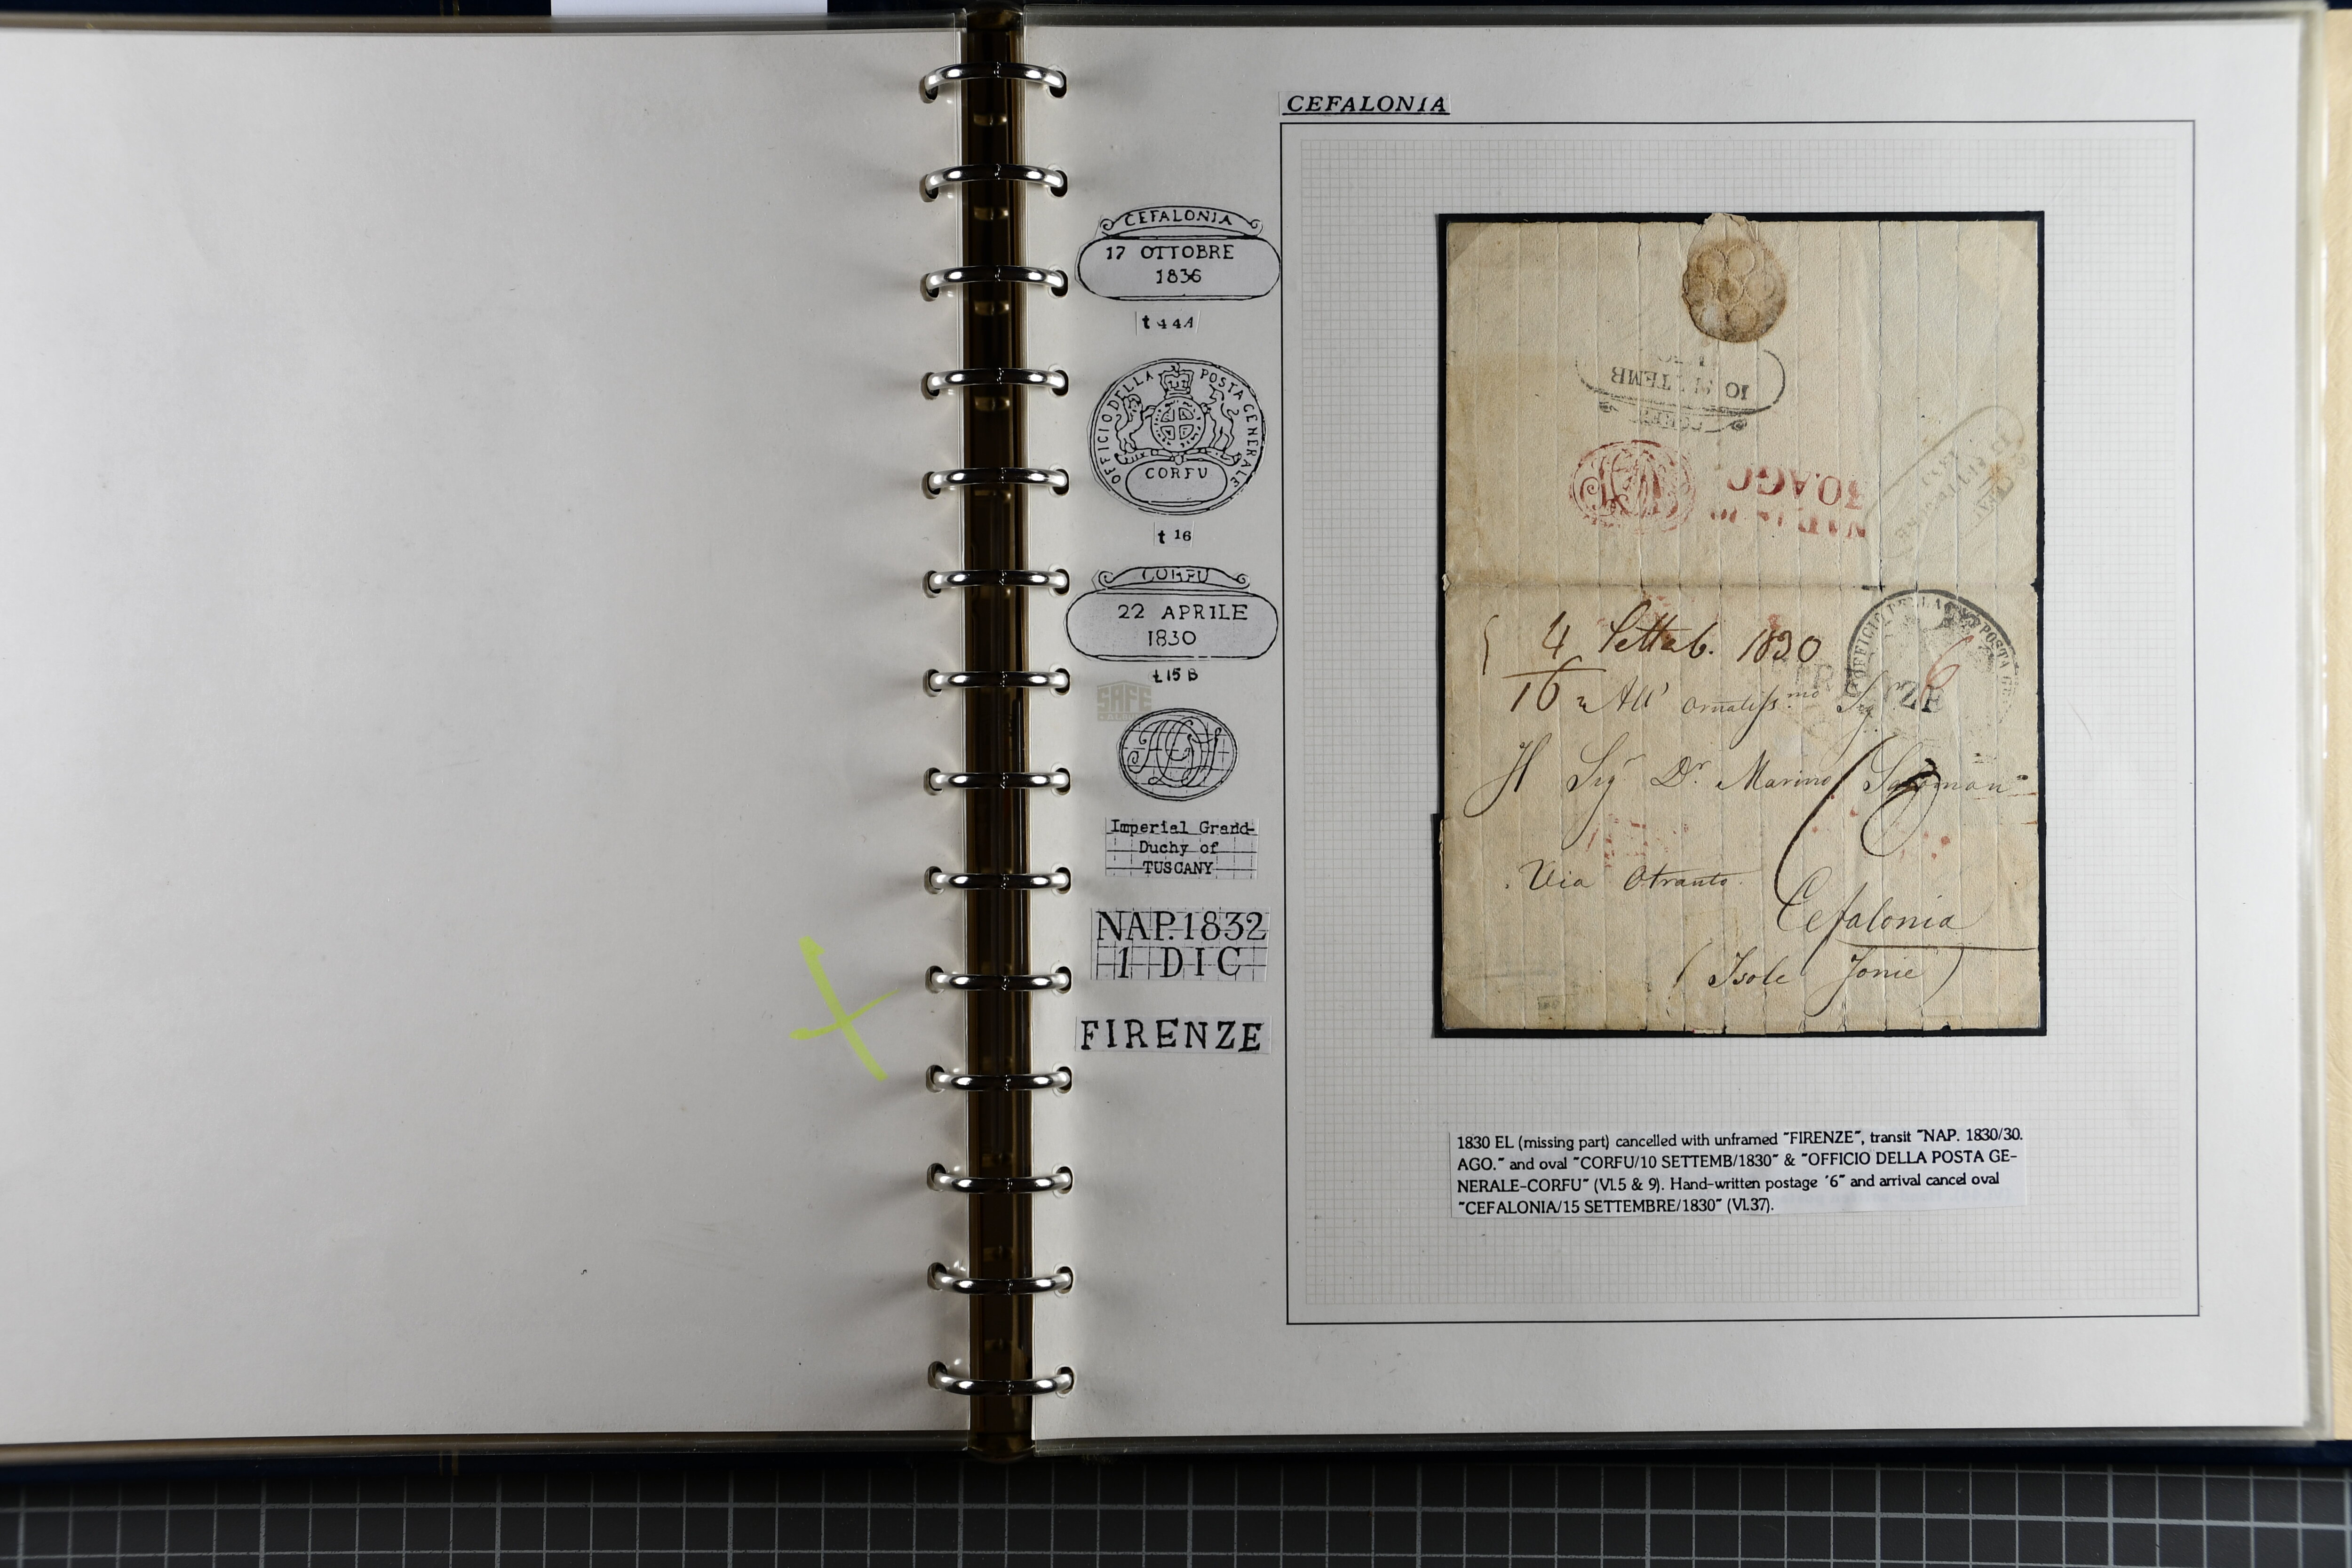 CEFALONIA
CEFALONIA
17 OTTOBRE
1836
t 44A
OFFICIO DELLA POSTA GENERALE
CORFU
t 16
CORFU
22 APRILE
1830
t 15 B
SAFE
Imperial Grand-
Duchy of
TUSCANY
NAP. 1832
1 DIC
FIRENZE
CORFU
10 SETTEMB
30.AGO
OFFICIO DELLA POSTA GE
4 Setteb. 1830
16
All' Ornatiss.mo Sigr
FIRENZE
6
Il Sigr Dr Marino Salomon
Via Otranto
Cefalonia
(Isole Jonie)
1830 EL (missing part) cancelled with unframed "FIRENZE", transit "NAP. 1830/30.
AGO." and oval "CORFU/10 SETTEMB/1830" & "OFFICIO DELLA POSTA GE-
NERALE-CORFU" (Vl.5 & 9). Hand-written postage '6" and arrival cancel oval
"CEFALONIA/15 SETTEMBRE/1830" (Vl.37).